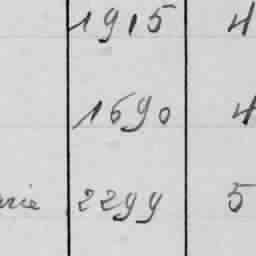 1915 4
1690 4
2299 5